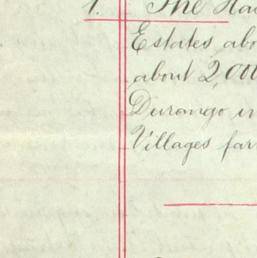 1. The
Estates abo
about 2,00
Durango in
Villages far